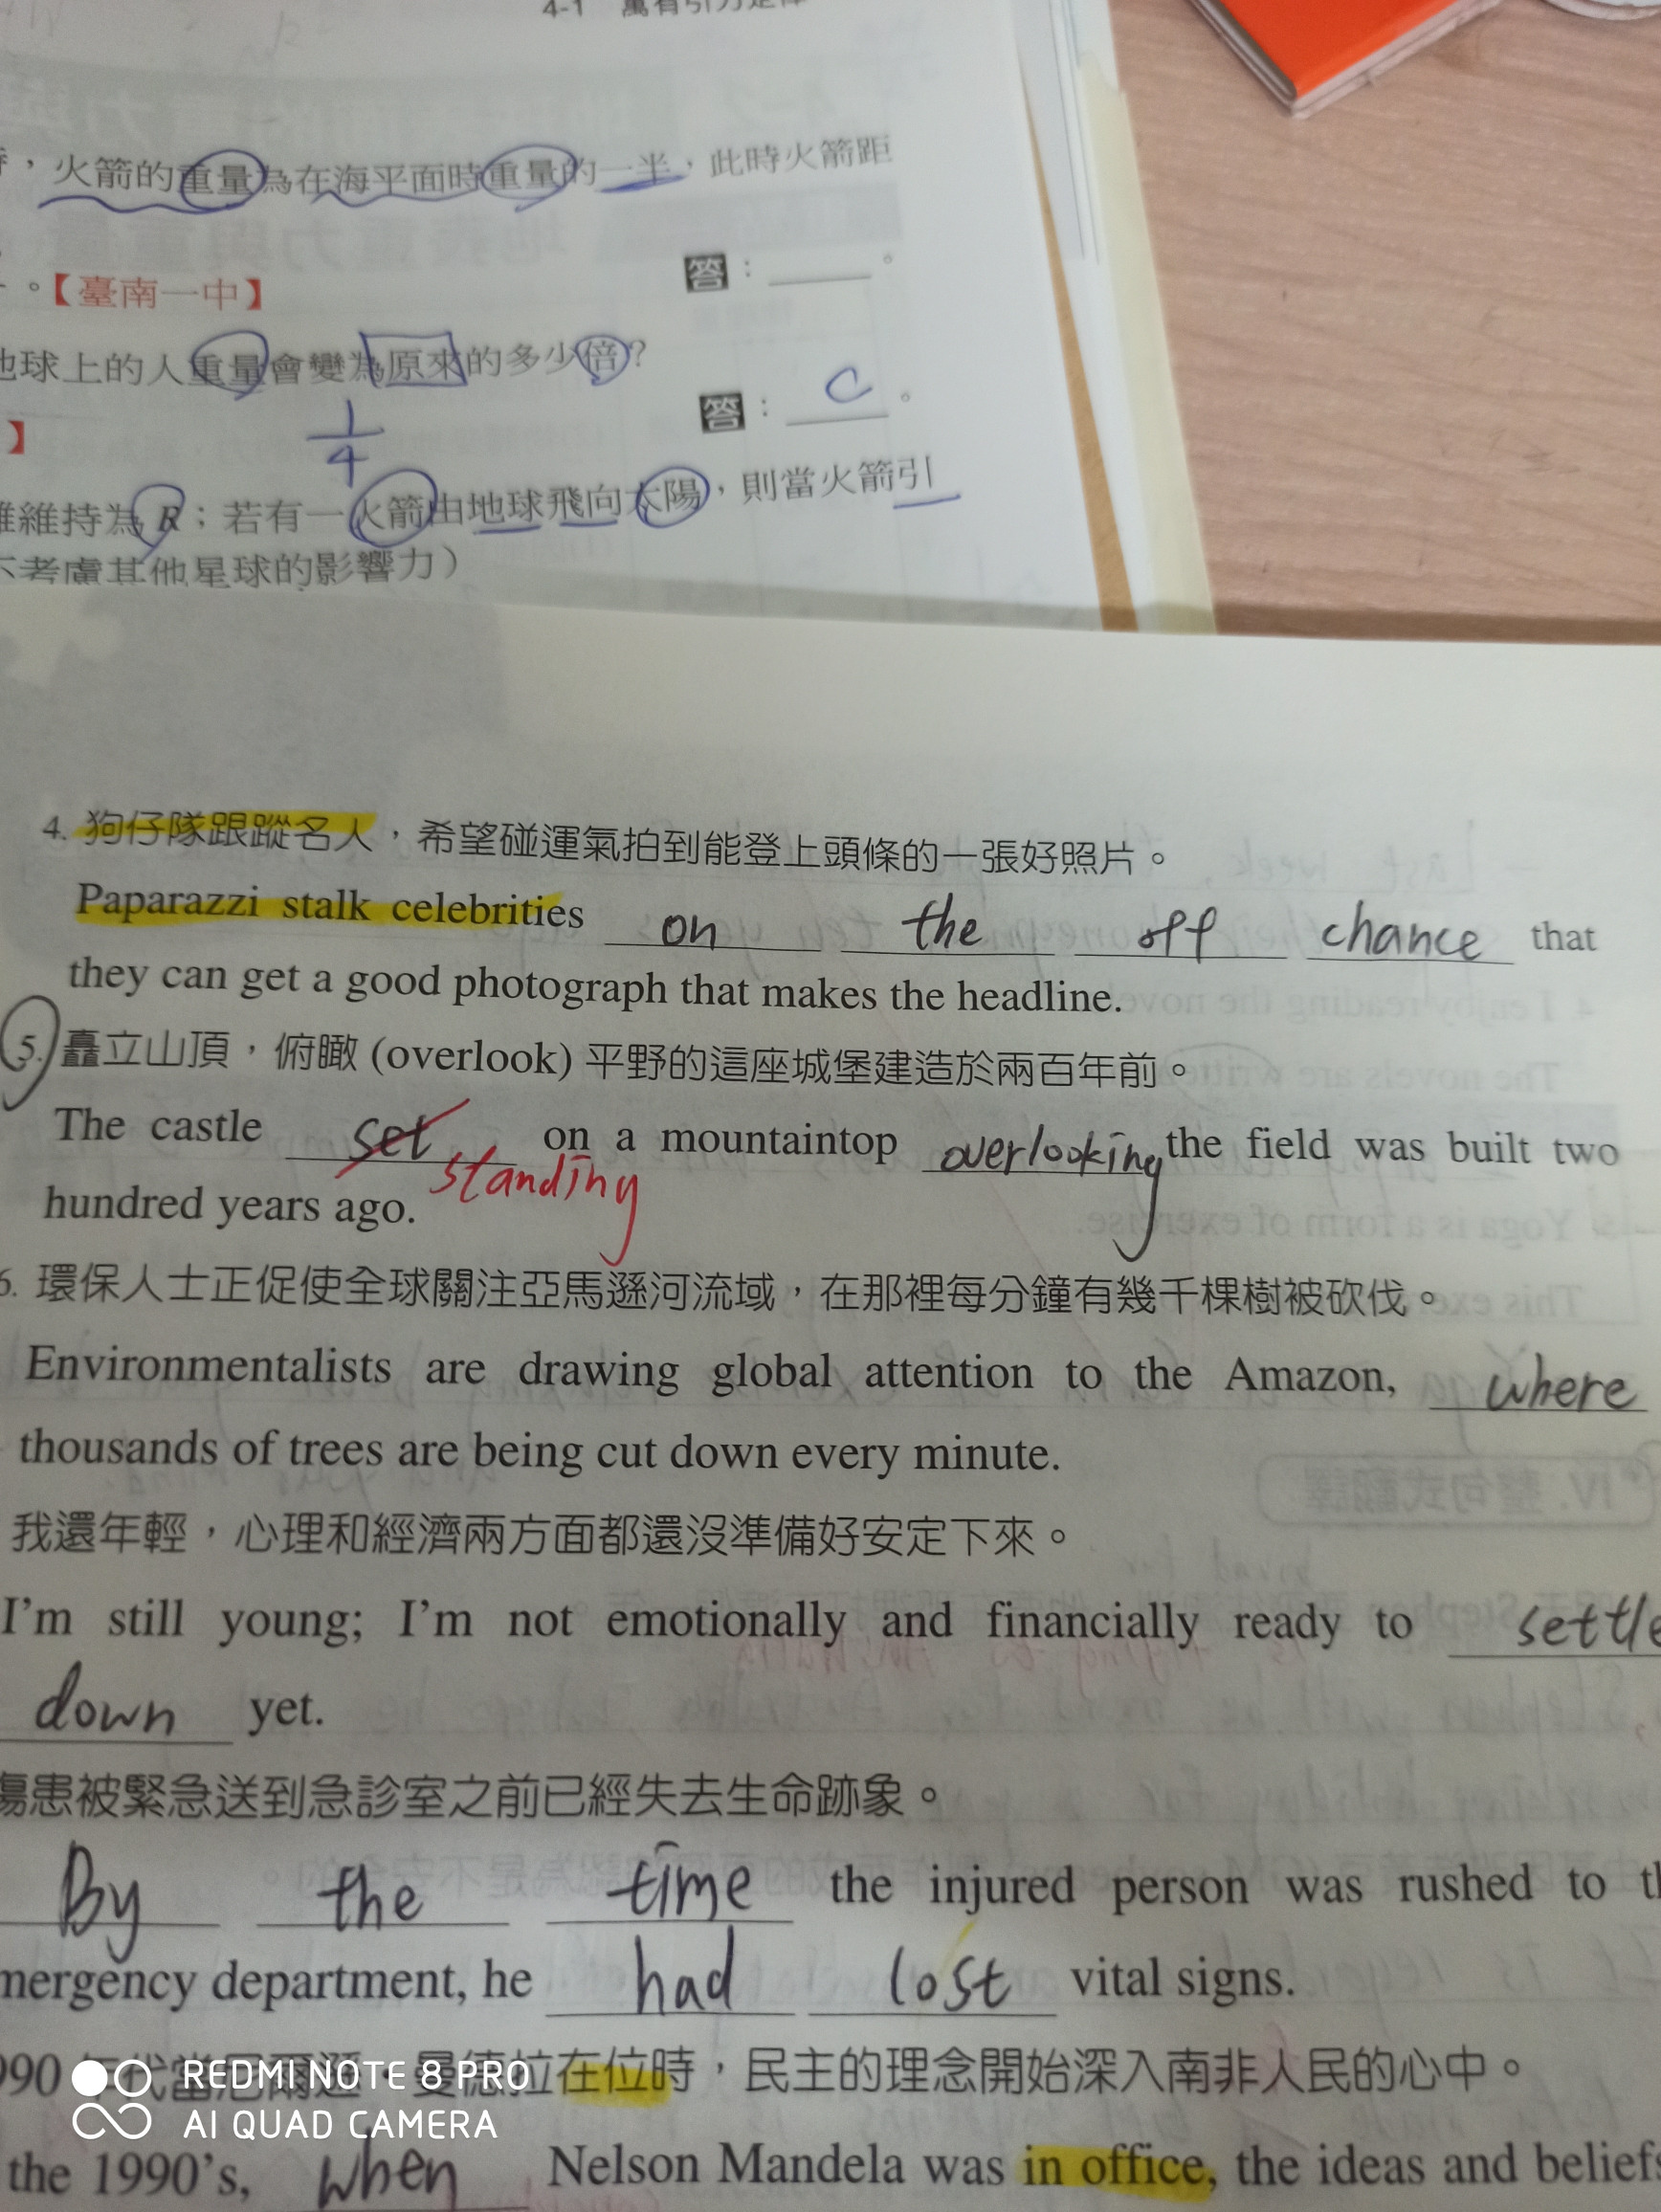 4-1 萬有引力定律
，火箭的重量為在海平面時重量的一半，此時火箭距
。【臺南一中】
答：______。
地球上的人重量會變為原來的多少倍？
1/4
】
答：C。
維持為R；若有一火箭由地球飛向太陽，則當火箭引
不考慮其他星球的影響力）
4. 狗仔隊跟蹤名人，希望碰運氣拍到能登上頭條的一張好照片。
Paparazzi stalk celebrities on the off chance that
they can get a good photograph that makes the headline.
5. 矗立山頂，俯瞰 (overlook) 平野的這座城堡建造於兩百年前。
The castle set on a mountaintop overlooking the field was built two
standing
hundred years ago.
6. 環保人士正促使全球關注亞馬遜河流域，在那裡每分鐘有幾千棵樹被砍伐。
Environmentalists are drawing global attention to the Amazon, where
thousands of trees are being cut down every minute.
我還年輕，心理和經濟兩方面都還沒準備好安定下來。
I'm still young; I'm not emotionally and financially ready to settle
down yet.
傷患被緊急送到急診室之前已經失去生命跡象。
By the time the injured person was rushed to th
mergency department, he had lost vital signs.
990 年代當尼爾遜．曼德拉在位時，民主的理念開始深入南非人民的心中。
REDMI NOTE 8 PRO
AI QUAD CAMERA
the 1990's, when Nelson Mandela was in office, the ideas and beliefs